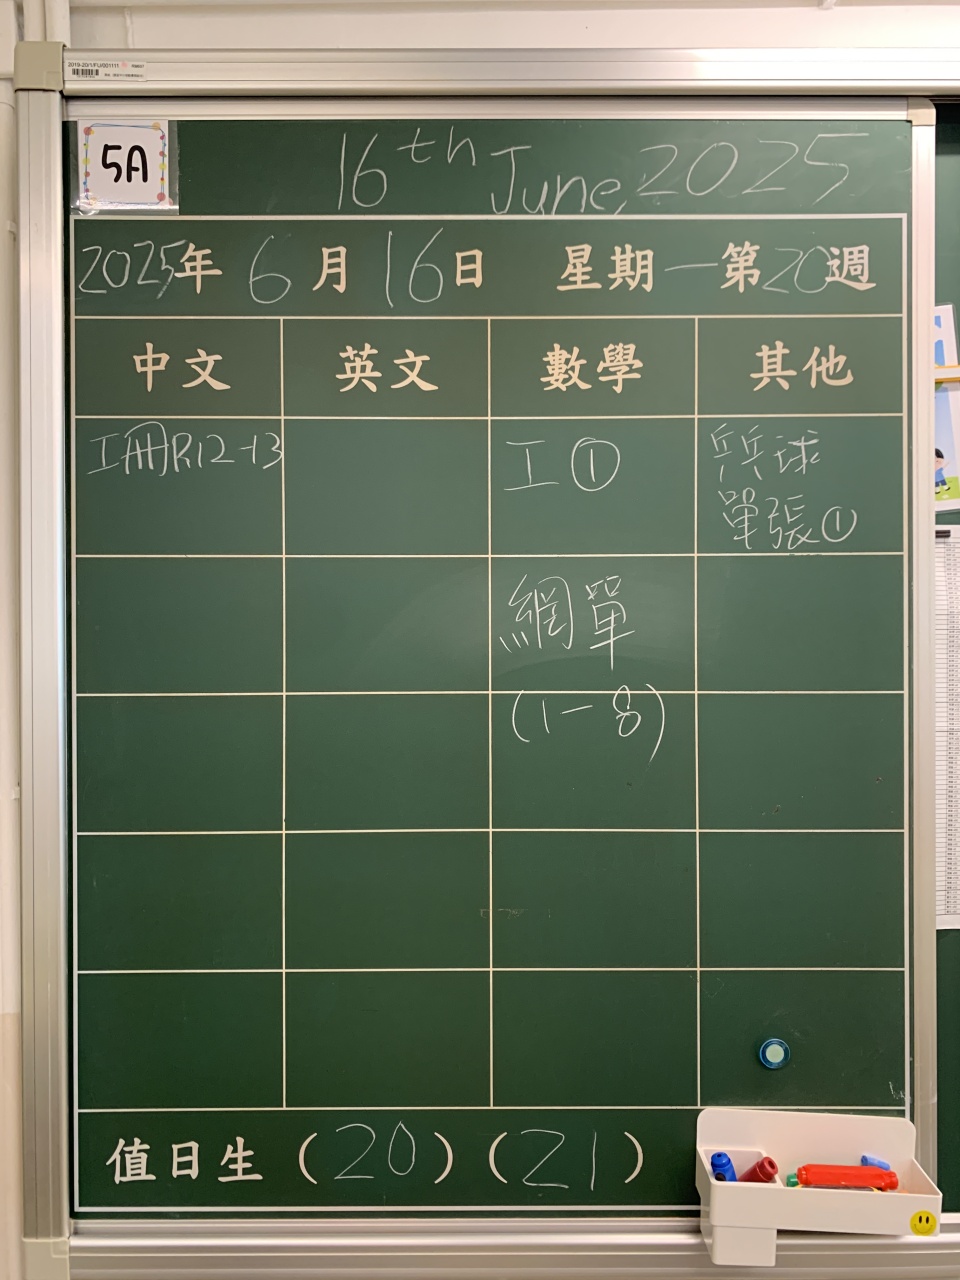 2019-20/1/FU/001111
5A
16th June, 2025
2025年 6月 16日 星期一 第20週
中文 英文 數學 其他
工冊P.12-13
工①
乒乓球
單張①
網單
(1-8)
值日生 (20) (21)